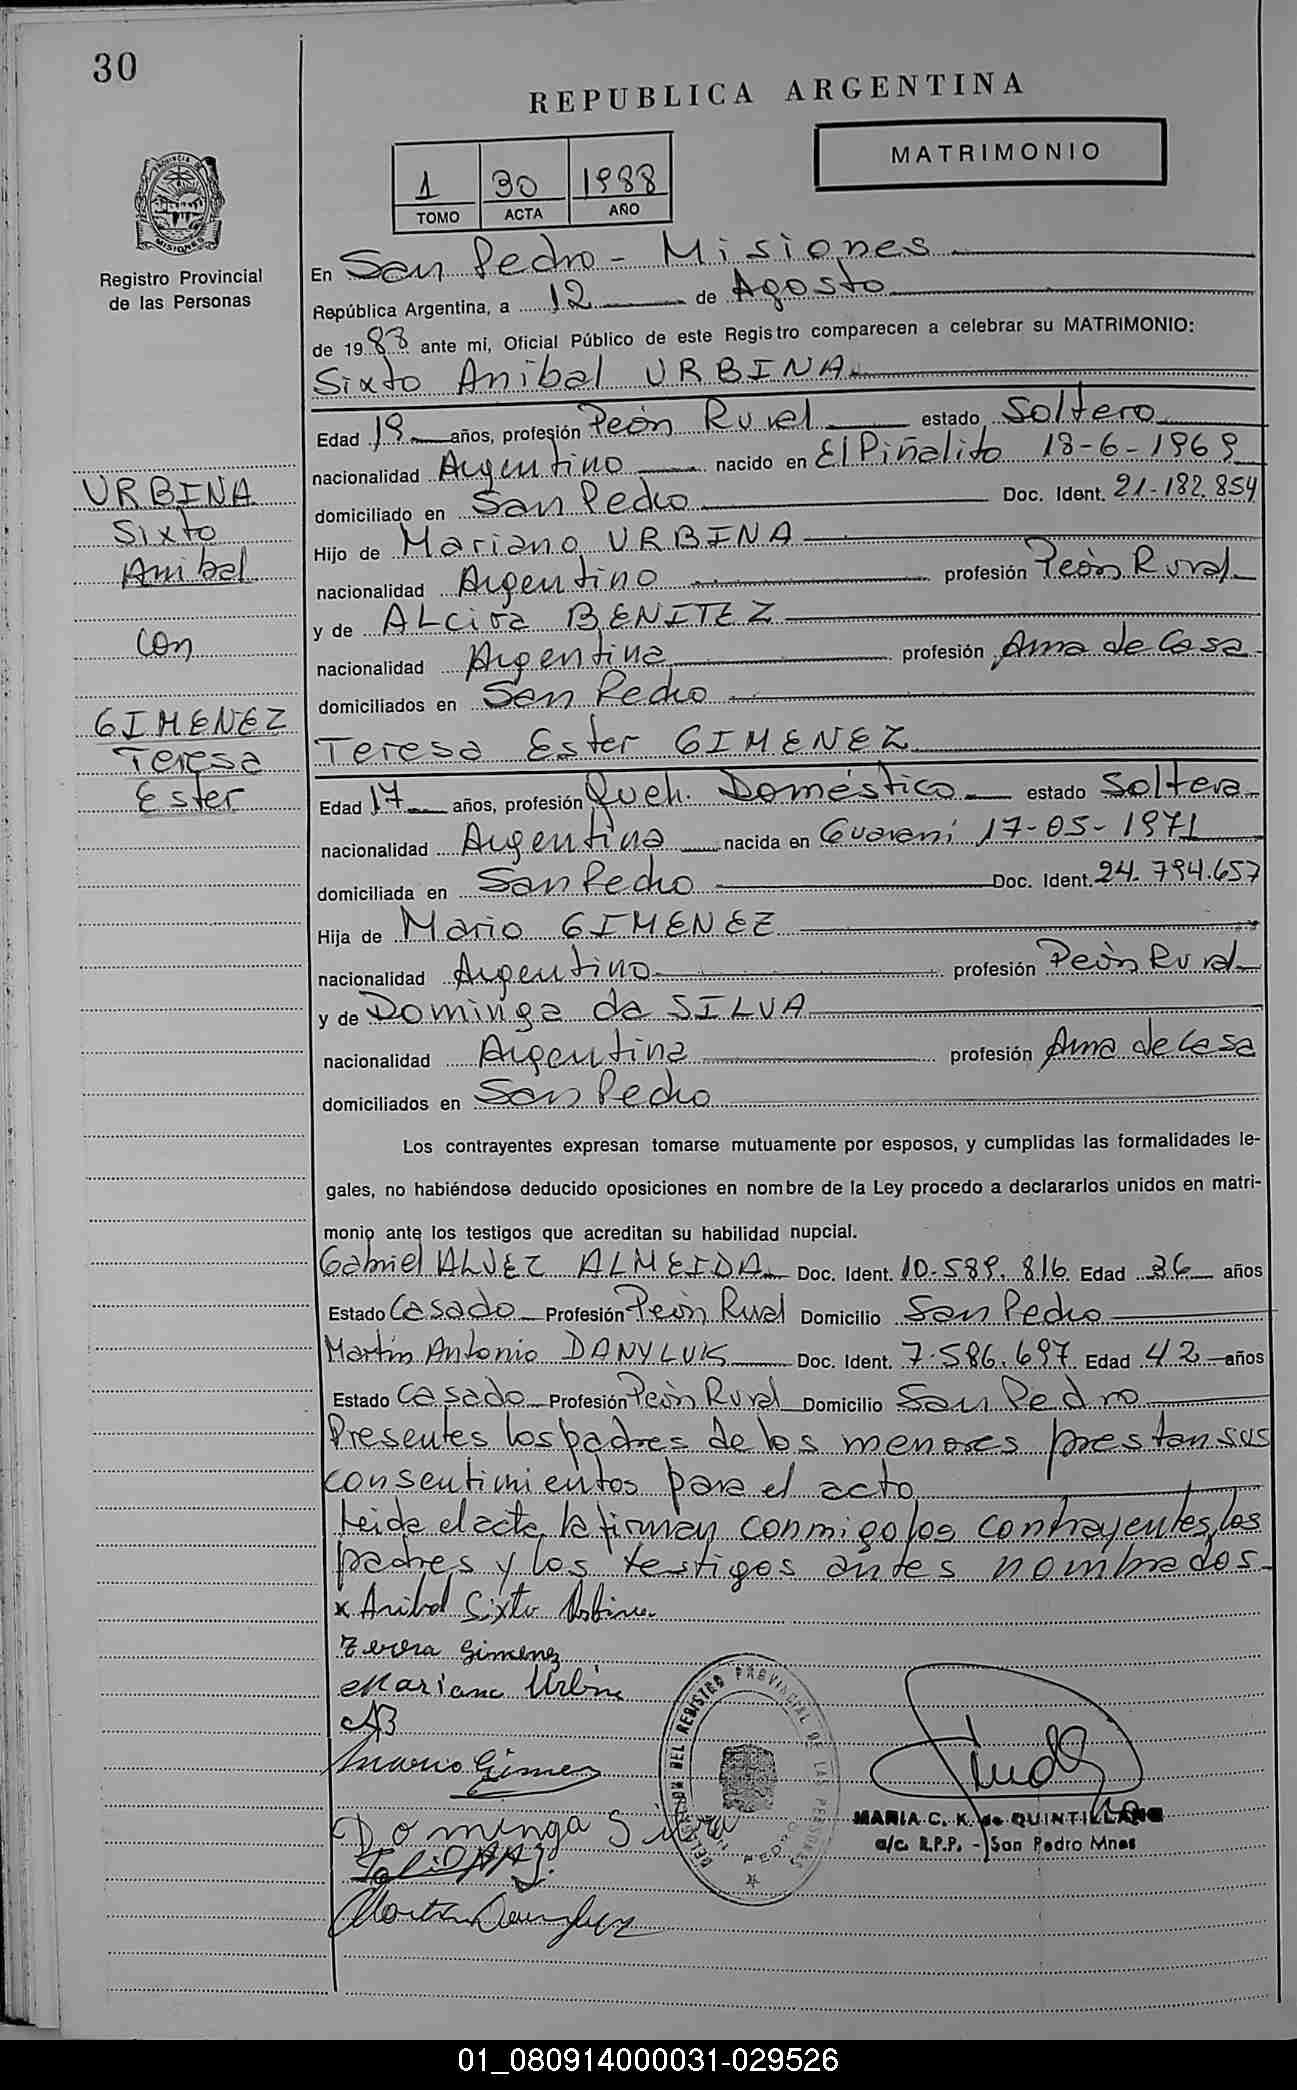 30
REPUBLICA ARGENTINA
MATRIMONIO
1 30 1988
TOMO ACTA AÑO
PROVINCIA DE MISIONES
Registro Provincial
de las Personas
En San Pedro - Misiones
República Argentina, a 12 de Agosto
de 1988 ante mí, Oficial Público de este Registro comparecen a celebrar su MATRIMONIO:
Sixto Anibal URBINA
Edad 19 años, profesión Peón Rural estado Soltero
nacionalidad Argentino nacido en El Piñalito 18-6-1969
domiciliado en San Pedro Doc. Ident. 21-182.854
Hijo de Mariano URBINA
nacionalidad Argentino profesión Peòn Rural
y de ALcira BENITEZ
nacionalidad Argentina profesión Ama de Casa
domiciliados en San Pedro
URBINA
Sixto
Anibal
con
GIMENEZ
Teresa
Ester
Teresa Ester GIMENEZ
Edad 17 años, profesión Queh. Doméstico estado Soltera
nacionalidad Argentina nacida en Guarani 17-05-1971
domiciliada en San Pedro Doc. Ident. 24.794.657
Hija de Mario GIMENEZ
nacionalidad Argentino profesión Peòn Rural
y de Dominga da SILVA
nacionalidad Argentina profesión Ama de Casa
domiciliados en San Pedro
Los contrayentes expresan tomarse mutuamente por esposos, y cumplidas las formalidades le-
gales, no habiéndose deducido oposiciones en nombre de la Ley procedo a declararlos unidos en matri-
monio ante los testigos que acreditan su habilidad nupcial.
Gabriel ALVEZ ALMEIDA Doc. Ident. 10-589.816 Edad 36 años
Estado Casado Profesión Peòn Rural Domicilio San Pedro
Martín Antonio DANYLUK Doc. Ident. 7.586.697 Edad 42 años
Estado Casado Profesión Peòn Rural Domicilio San Pedro
Presentes los padres de los menores prestan sus
consentimientos para el acto
Leida el acta, la firman conmigo los contrayentes, los
padres y los testigos antes nombrados
x Anibal Sixto Urbina
Teresa Gimenez
Mariano Urbina
AB
Mario Gimenez
Dominga Silva
DEL REGISTRO PROVINCIAL DE LAS PERSONAS
MARIA C. K. de QUINTILLANO
a/c. R.P.P. - San Pedro Mnes
01_080914000031-029526